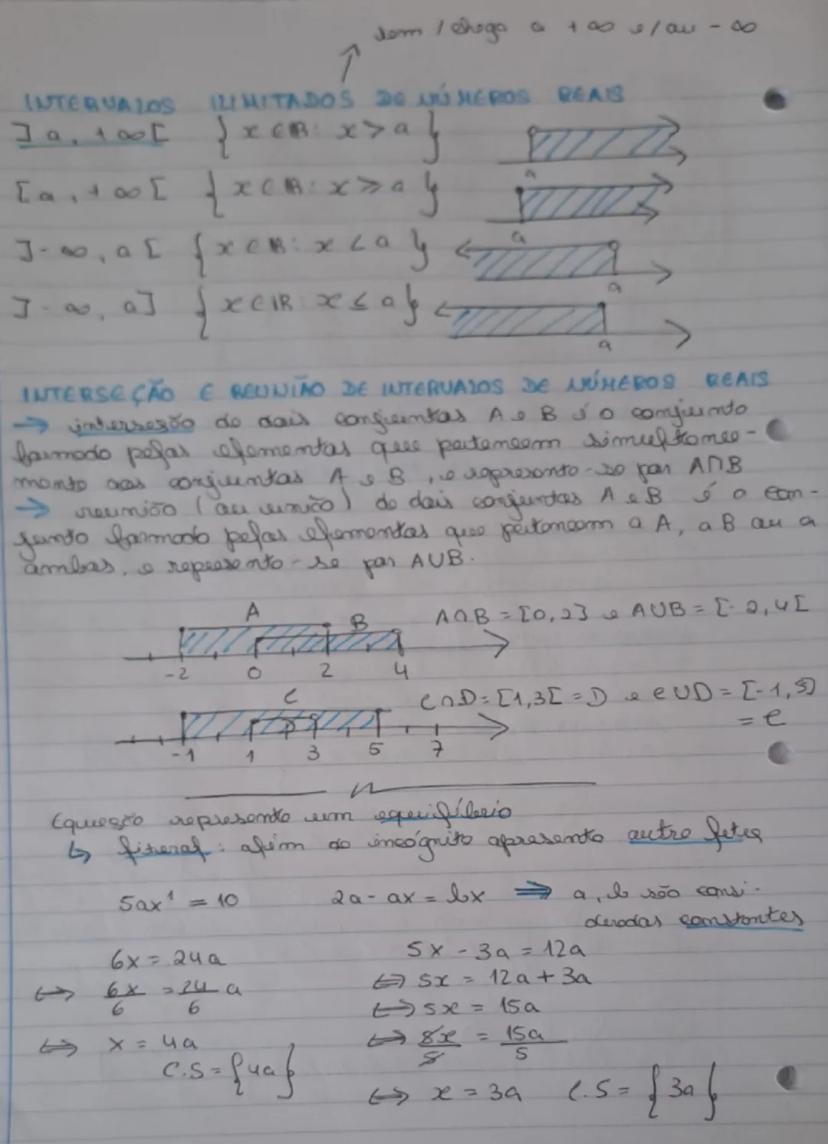 sem / chega a +∞ e/ou -∞
INTERVALOS ILIMITADOS DE NÚMEROS REAIS
]a, +∞[ {x ∈ IR: x > a}
a
[a, +∞[ {x ∈ IR: x ≥ a}
a
]-∞, a[ {x ∈ IR: x < a}
a
]-∞, a] {x ∈ IR: x ≤ a}
a
INTERSEÇÃO E REUNIÃO DE INTERVALOS DE NÚMEROS REAIS
→ interseção de dois conjuntos A e B é o conjunto
formado pelos elementos que pertencem simultanea-
mente aos conjuntos A e B, e representa-se por A∩B
→ reunião (ou união) de dois conjuntos A e B é o con-
junto formado pelos elementos que pertencem a A, a B ou a
ambos, e representa-se por AUB.
A B A∩B = [0,2] e AUB = [-2,4[
-2 0 2 4
C C∩D = [1,3[ = D e CUD = [-1,5]
= C
-1 1 3 5 7
Equação representa um equilíbrio
↳ literal: além da incógnita apresenta outra letra
5ax¹ = 10 2a - ax = bx ⇒ a, b são consi-
deradas constantes
6x = 24a 5x - 3a = 12a
⇔ 6x/6 = 24/6 a ⇔ 5x = 12a + 3a
⇔ 5x = 15a
⇔ x = 4a ⇔ 5x/5 = 15a/5
C.S = {4a}
⇔ x = 3a C.S = {3a}